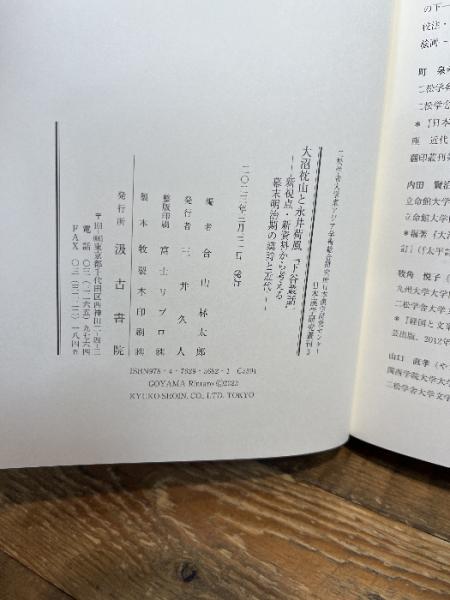 二松学舎大学東アジア学術総合研究所日本漢学研究センター
日本漢学研究叢刊3
大沼枕山と永井荷風『下谷叢話』
―新視点・新資料から考える
幕末明治期の漢詩と近代―
二〇二三年三月三一日 発行
編者 合山林太郎
発行者 三井久人
整版印刷 富士リプロ㈱
製本 牧製本印刷㈱
発行所 汲古書院
電話〇三(三二六五)九七六四
ISBN978-4-7629-3682-1 C3394
GOYAMA Rintaro ©2023
KYUKO-SHOIN, CO., LTD. TOKYO
の下一
校注・
町 泉
二松学舎
二松学舎
*『日本
座 近代
内田 賢治
立命館大学
立命館大学
*編著『大沼
訂』(太平
牧角 悦子
九州大学大学
二松学舎大学文
*『経国と文章
芸出版、2012年
山口 直孝(や
関西学院大学大
二松学舎大学文学